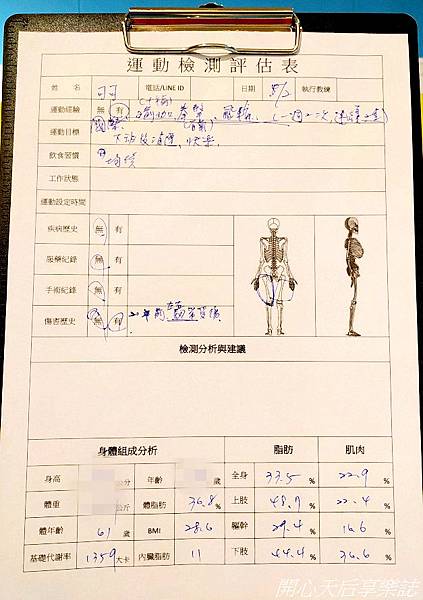 運動檢測評估表
姓名 可可 電話/LINE ID 日期 5/2 執行教練
運動經驗 無 有 瑜珈
運動目標 國標 快樂
飲食習慣 均衡
工作狀態
運動設定時間
疾病歷史 無 有
服藥紀錄 無 有
手術紀錄 無 有
傷害歷史 無 有 20年前
檢測分析與建議
身體組成分析 脂肪 肌肉
身高 公分 年齡 歲 全身 33.5 % 22.9 %
體重 公斤 體脂肪 36.8 % 上肢 48.9 % 22.4 %
體年齡 61 歲 BMI 28.6 軀幹 29.4 % 16.6 %
基礎代謝率 1359 大卡 內臟脂肪 11 下肢 44.4 % 36.6 %
開心天后享樂誌